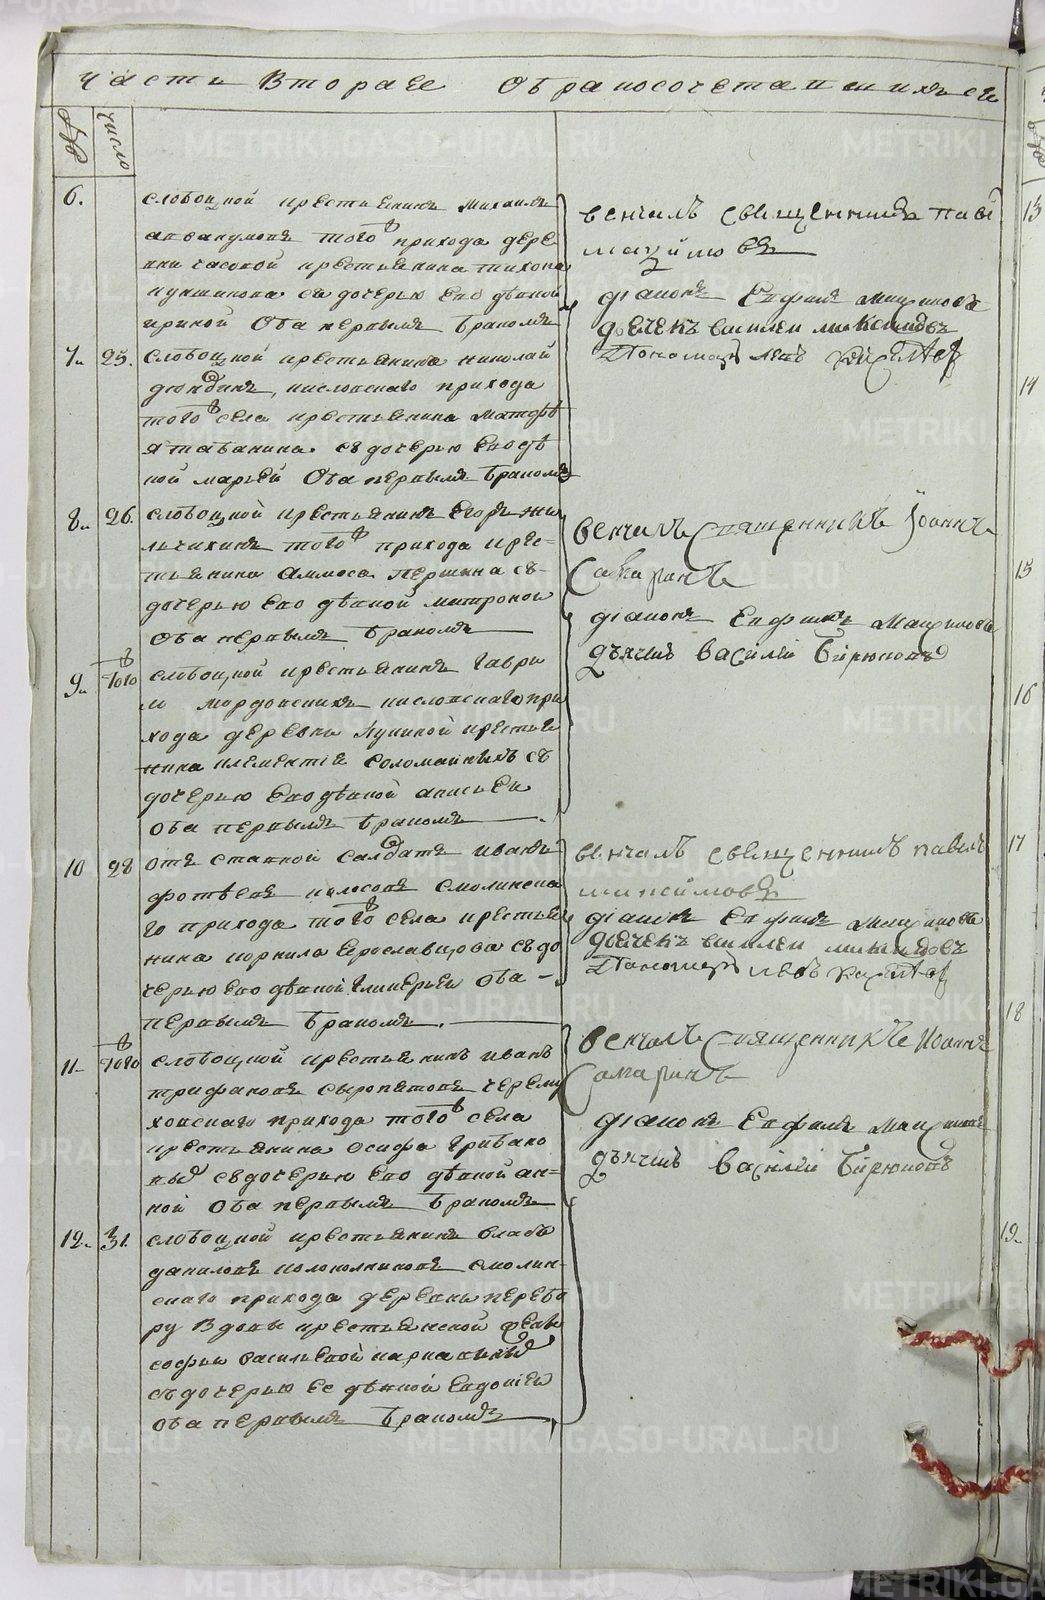 Части вторая О бракосочетавшихся
число
6.
слободской крестьянинъ михаилъ
авакумовъ того прихода дере
вни часовой крестьянина тихона
кукшинова съ дочерью его дѣвкой
ириной Оба первымъ бракомъ
венчалъ священникъ
диаконъ Евфимъ
дьячекъ василеи
Пономарь левъ
7. 25. слободской крестьянинъ николай
дюндинъ, кисловскаго прихода
того села крестьянина матфѣ
я табанина съ дочерью его дѣ
вкой марьей Оба первымъ бракомъ
8. 26. слободской крестьянинъ Егоръ жи
льчихинъ того прихода крес-
тьянина Аммоса Першина съ
дочерью его дѣвкой матроной
Оба первымъ бракомъ
венчалъ священникъ Iоаннъ
Самаринъ
диаконъ Евфимъ
дьячекъ Василiй Бирюковъ
9. того слободской крестьянинъ гаври
ло мордовскихъ кисловскаго при
хода деревни крестья
нина клементiя Соломаиныхъ съ
дочерью его дѣвкой анисьеи
Оба первымъ бракомъ
10 28 отставной Салдатъ иванъ
фотѣевъ колосовъ смолинска
го прихода того села крестья
нина корнила Ерославцова съ до
черью его дѣвкой гликерьеи Оба
первымъ бракомъ.
венчалъ священникъ павелъ
диаконъ Евфимъ
дьячекъ василеи
Пономарь левъ
11. того слободской крестьянинъ иванъ
трифановъ сыропятовъ черему
ховскаго прихода того села
крестьянина осифа грибано
выхъ съ дочерью его дѣвкой ан-
ной Оба первымъ бракомъ
венчалъ священникъ Iоаннъ
Самаринъ
диаконъ Евфимъ
дьячекъ Василiй Бирюковъ
12. 31. слободской крестьянинъ
даниловъ колокольниковъ смолин-
скаго прихода деревни перебо
ру вдовы крестьянской
софьи васильевой
съ дочерью Ее дѣвкой Евдокiеи
Оба первымъ бракомъ
13
14
15
16
17
18
19.
METRIKI.GASO-URAL.RU